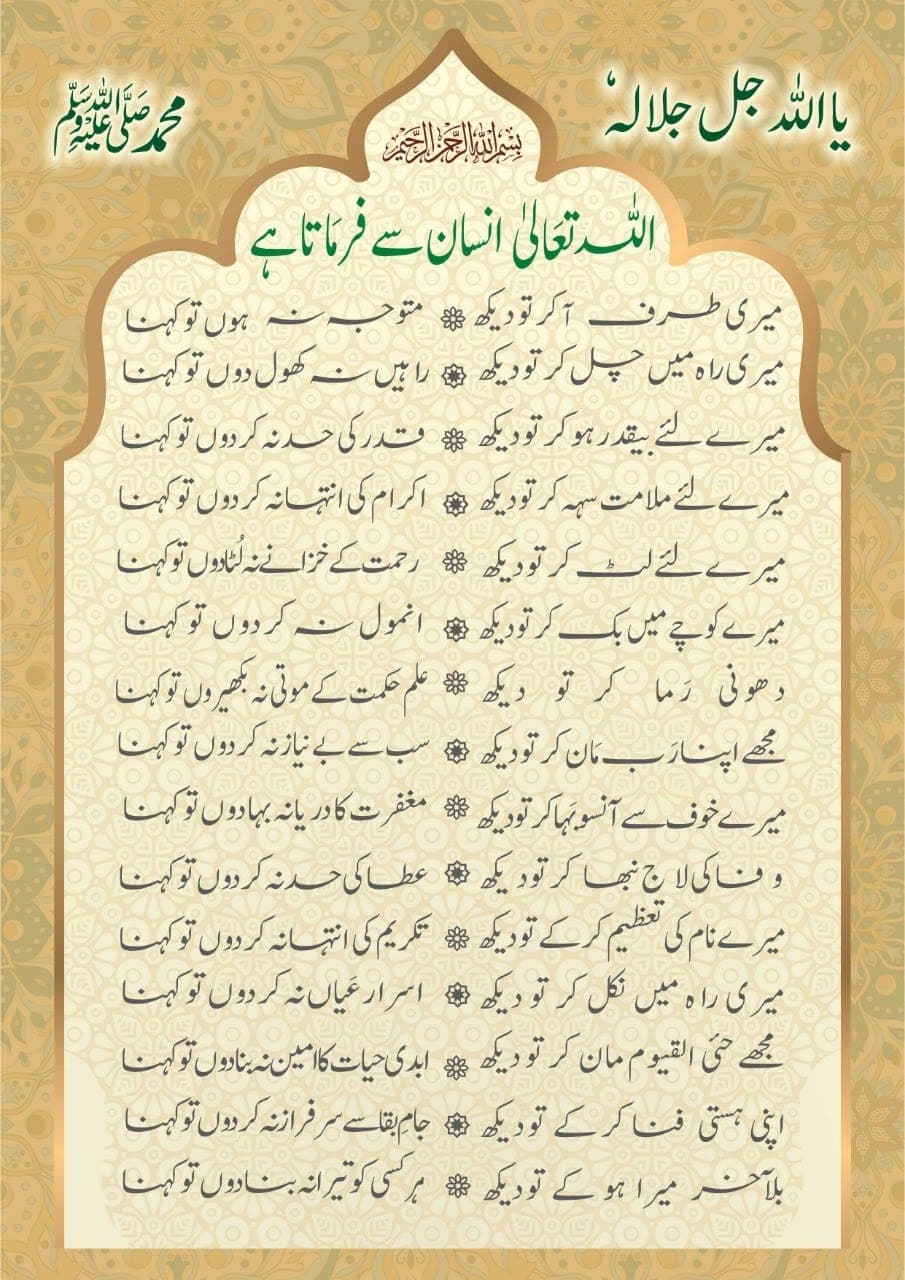 یا اللہ جل جلالہٗ
محمد صَلَّی اللّٰہُ عَلَیْہِ وَسَلَّم
بِسْمِ اللهِ الرَّحْمٰنِ الرَّحِيْمِ
اللہ تعَالیٰ انسان سے فرمَاتا ہے
میری طرف آ کر تو دیکھ متوجہ نہ ہوں تو کہنا
میری راہ میں چل کر تو دیکھ راہیں نہ کھول دوں تو کہنا
میرے لئے بیقدر ہو کر تو دیکھ قدر کی حد نہ کر دوں تو کہنا
میرے لئے ملامت سہہ کر تو دیکھ اکرام کی انتہا نہ کر دوں تو کہنا
میرے لئے لٹ کر تو دیکھ رحمت کے خزانے نہ لُٹا دوں تو کہنا
میرے کوچے میں بک کر تو دیکھ انمول نہ کر دوں تو کہنا
دھونی رَما کر تو دیکھ علم حکمت کے موتی نہ بکھیروں تو کہنا
مجھے اپنا رَب مَان کر تو دیکھ سب سے بے نیاز نہ کر دوں تو کہنا
میرے خوف سے آنسو بہَا کر تو دیکھ مغفرت کا دریا نہ بہا دوں تو کہنا
وفا کی لاج نبھا کر تو دیکھ عطا کی حد نہ کر دوں تو کہنا
میرے نام کی تعظیم کر کے تو دیکھ تکریم کی انتہا نہ کر دوں تو کہنا
میری راہ میں نکل کر تو دیکھ اسرار عَیاں نہ کر دوں تو کہنا
مجھے حَیُ القیوم مان کر تو دیکھ ابدی حیات کا امین نہ بنا دوں تو کہنا
اپنی ہستی فنا کر کے تو دیکھ جامِ بقا سے سرفراز نہ کر دوں تو کہنا
بلآخر میرا ہو کے تو دیکھ ہر کسی کو تیرا نہ بنا دوں تو کہنا